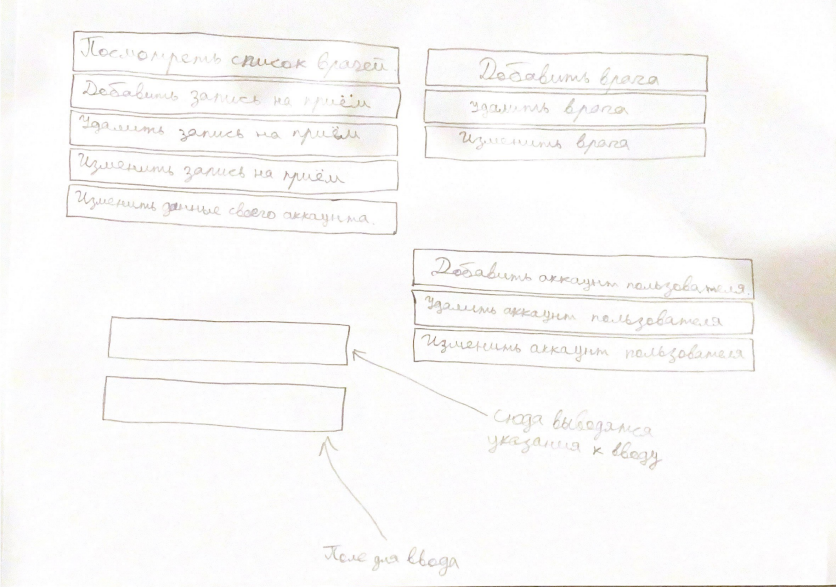 Посмотреть список врачей
Добавить запись на приём
Удалить запись на приём
Изменить запись на приём
Изменить данные своего аккаунта.
Добавить врача
Удалить врача
Изменить врача
Добавить аккаунт пользователя.
Удалить аккаунт пользователя
Изменить аккаунт пользователя
Сюда выводятся
указания к вводу
Поле для ввода